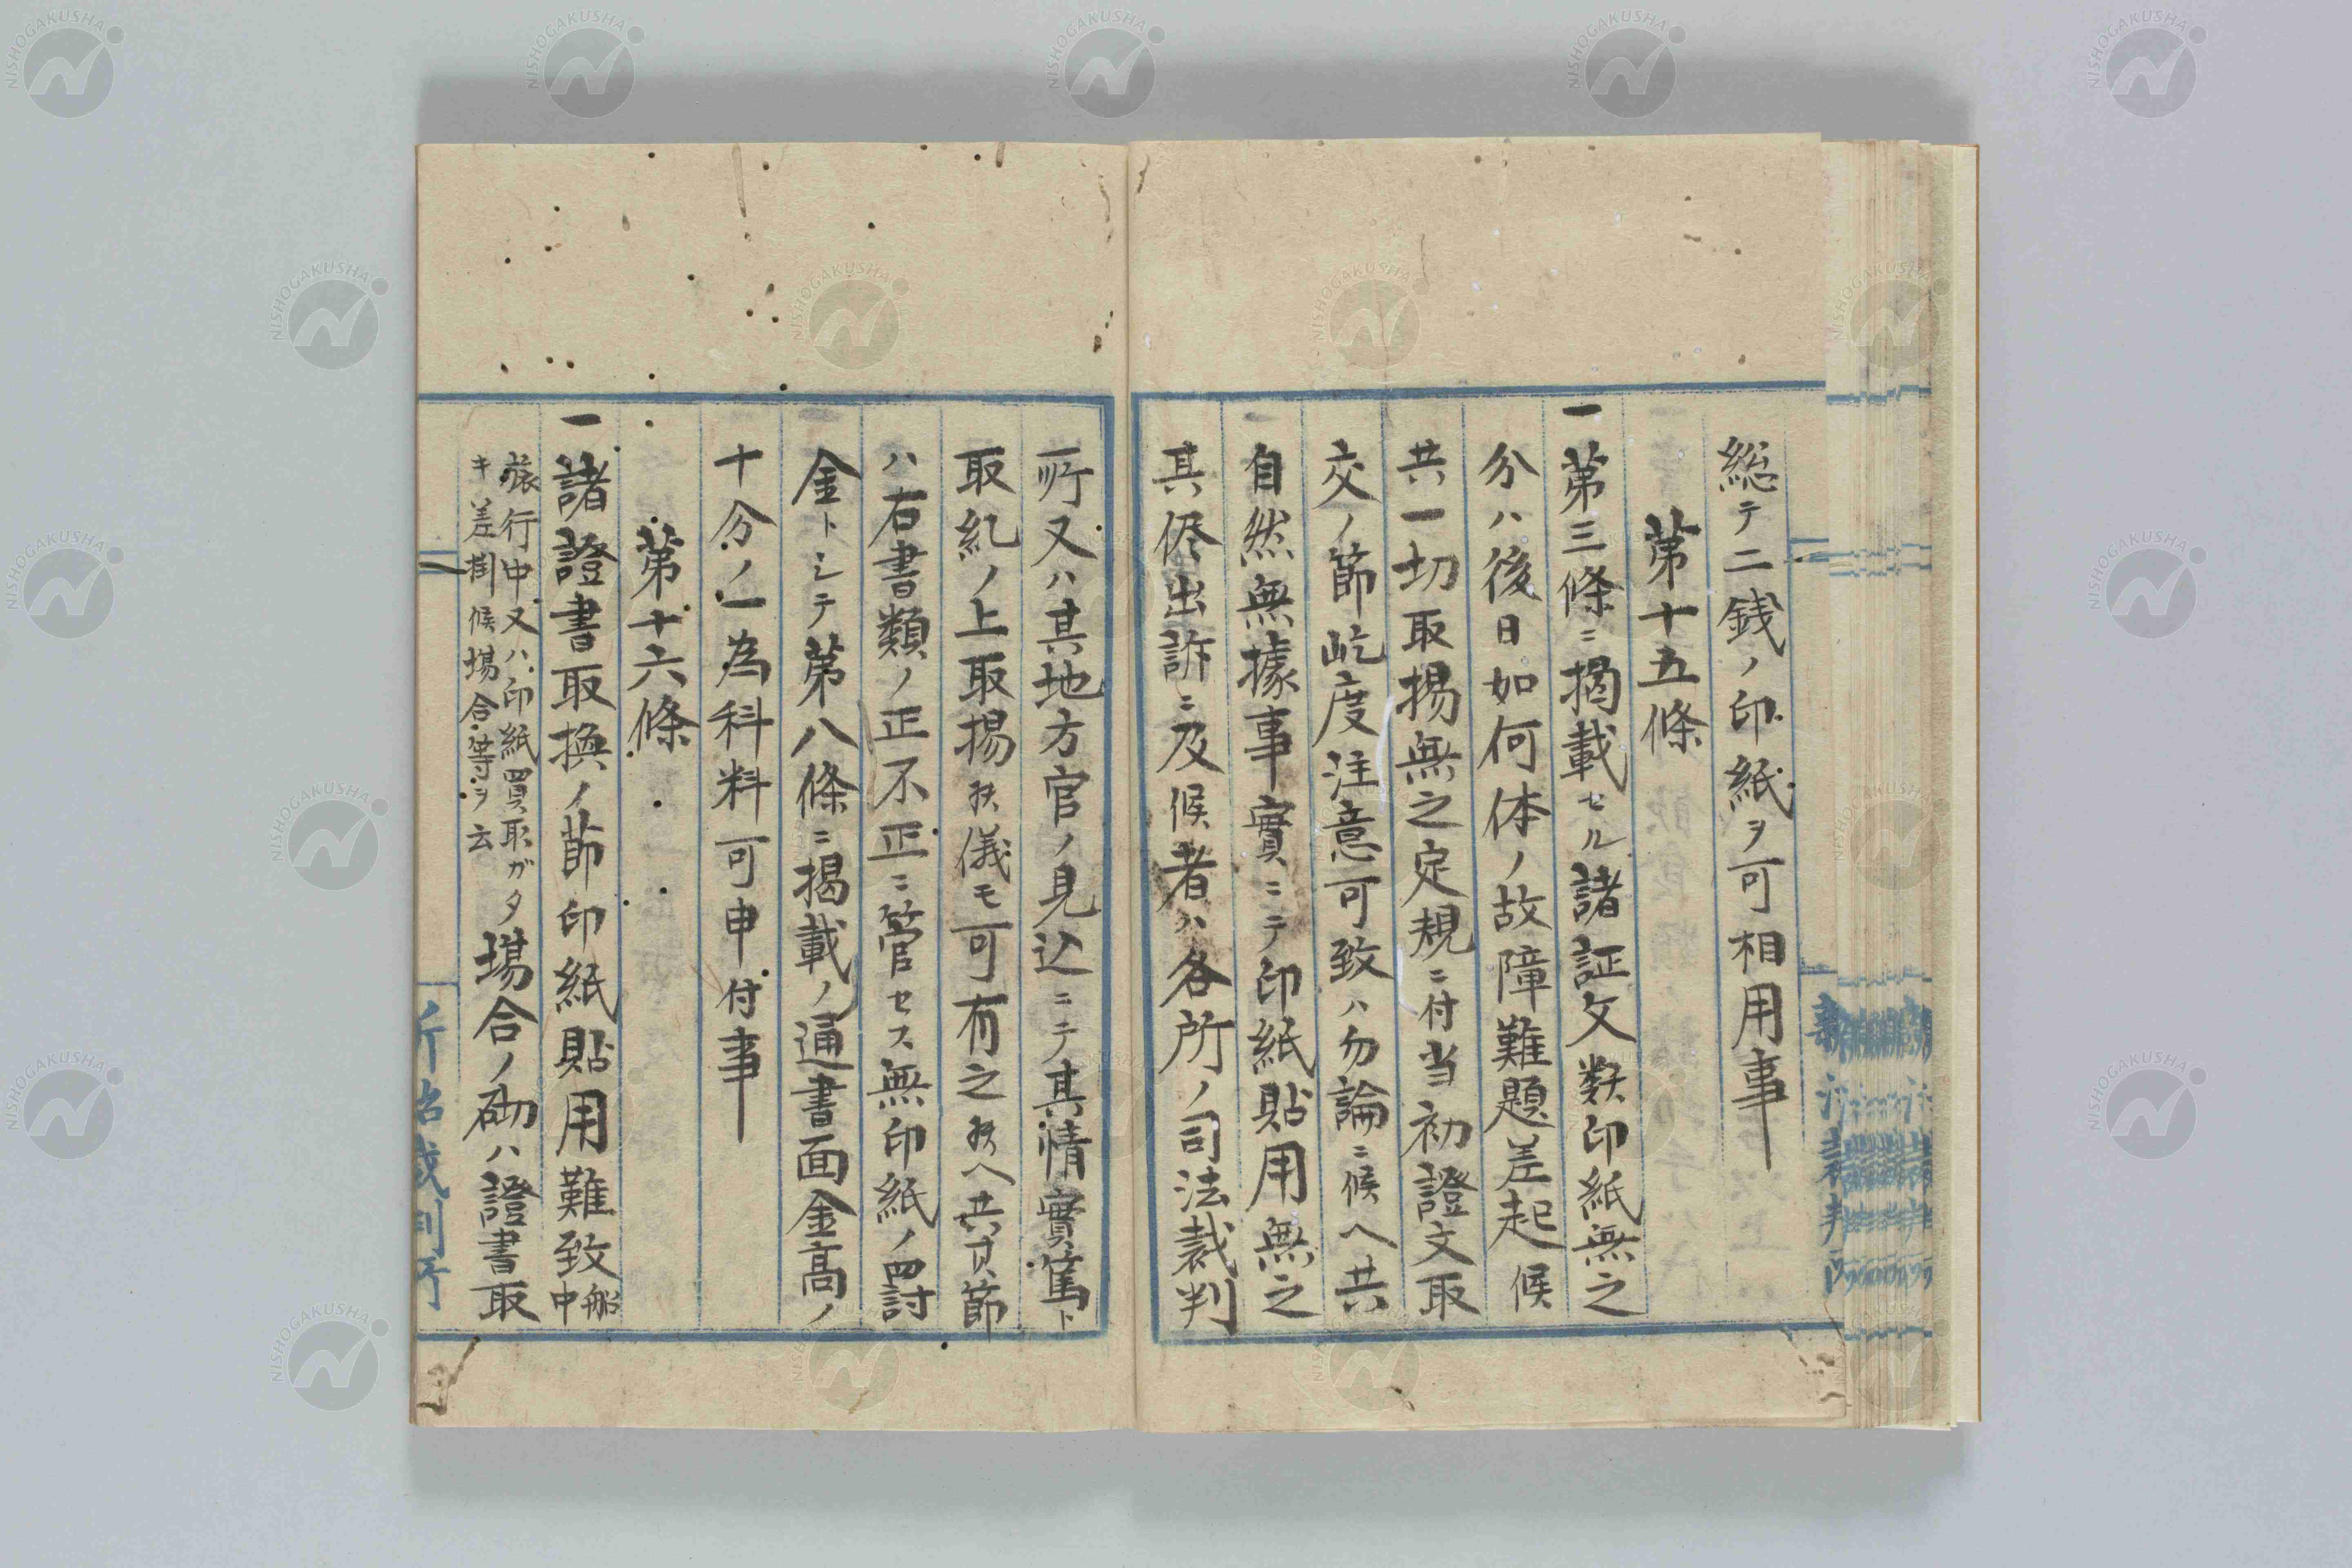 総テ二銭ノ印紙ヲ可相用事
第十五條
一第三條ニ掲載セル諸証文数印紙無之
分ハ後日如何体ノ故障難題差起候
共一切取揚無之定規ニ付当初證文取
交ノ節屹度注意可致ハ勿論ニ候ヘ共
自然無據事實ニテ印紙貼用無之
其侭出訴ニ及候者ハ各所ノ司法裁判
所又ハ其地方官ノ見込ニテ其情實篤ト
取糺ノ上取揚候儀モ可有之候ヘ共其節
ハ右書類ノ正不正ニ管セス無印紙ノ罰
金トシテ第八條ニ掲載ノ通書面金高ノ
十分ノ一為科料可申付事
第十六條
一諸證書取換ノ節印紙貼用難致船中
旅行中又ハ印紙買取ガタ
キ差掛候場合等ヲ云
場合ノ砌ハ證書取
NISHOGAKUSHA